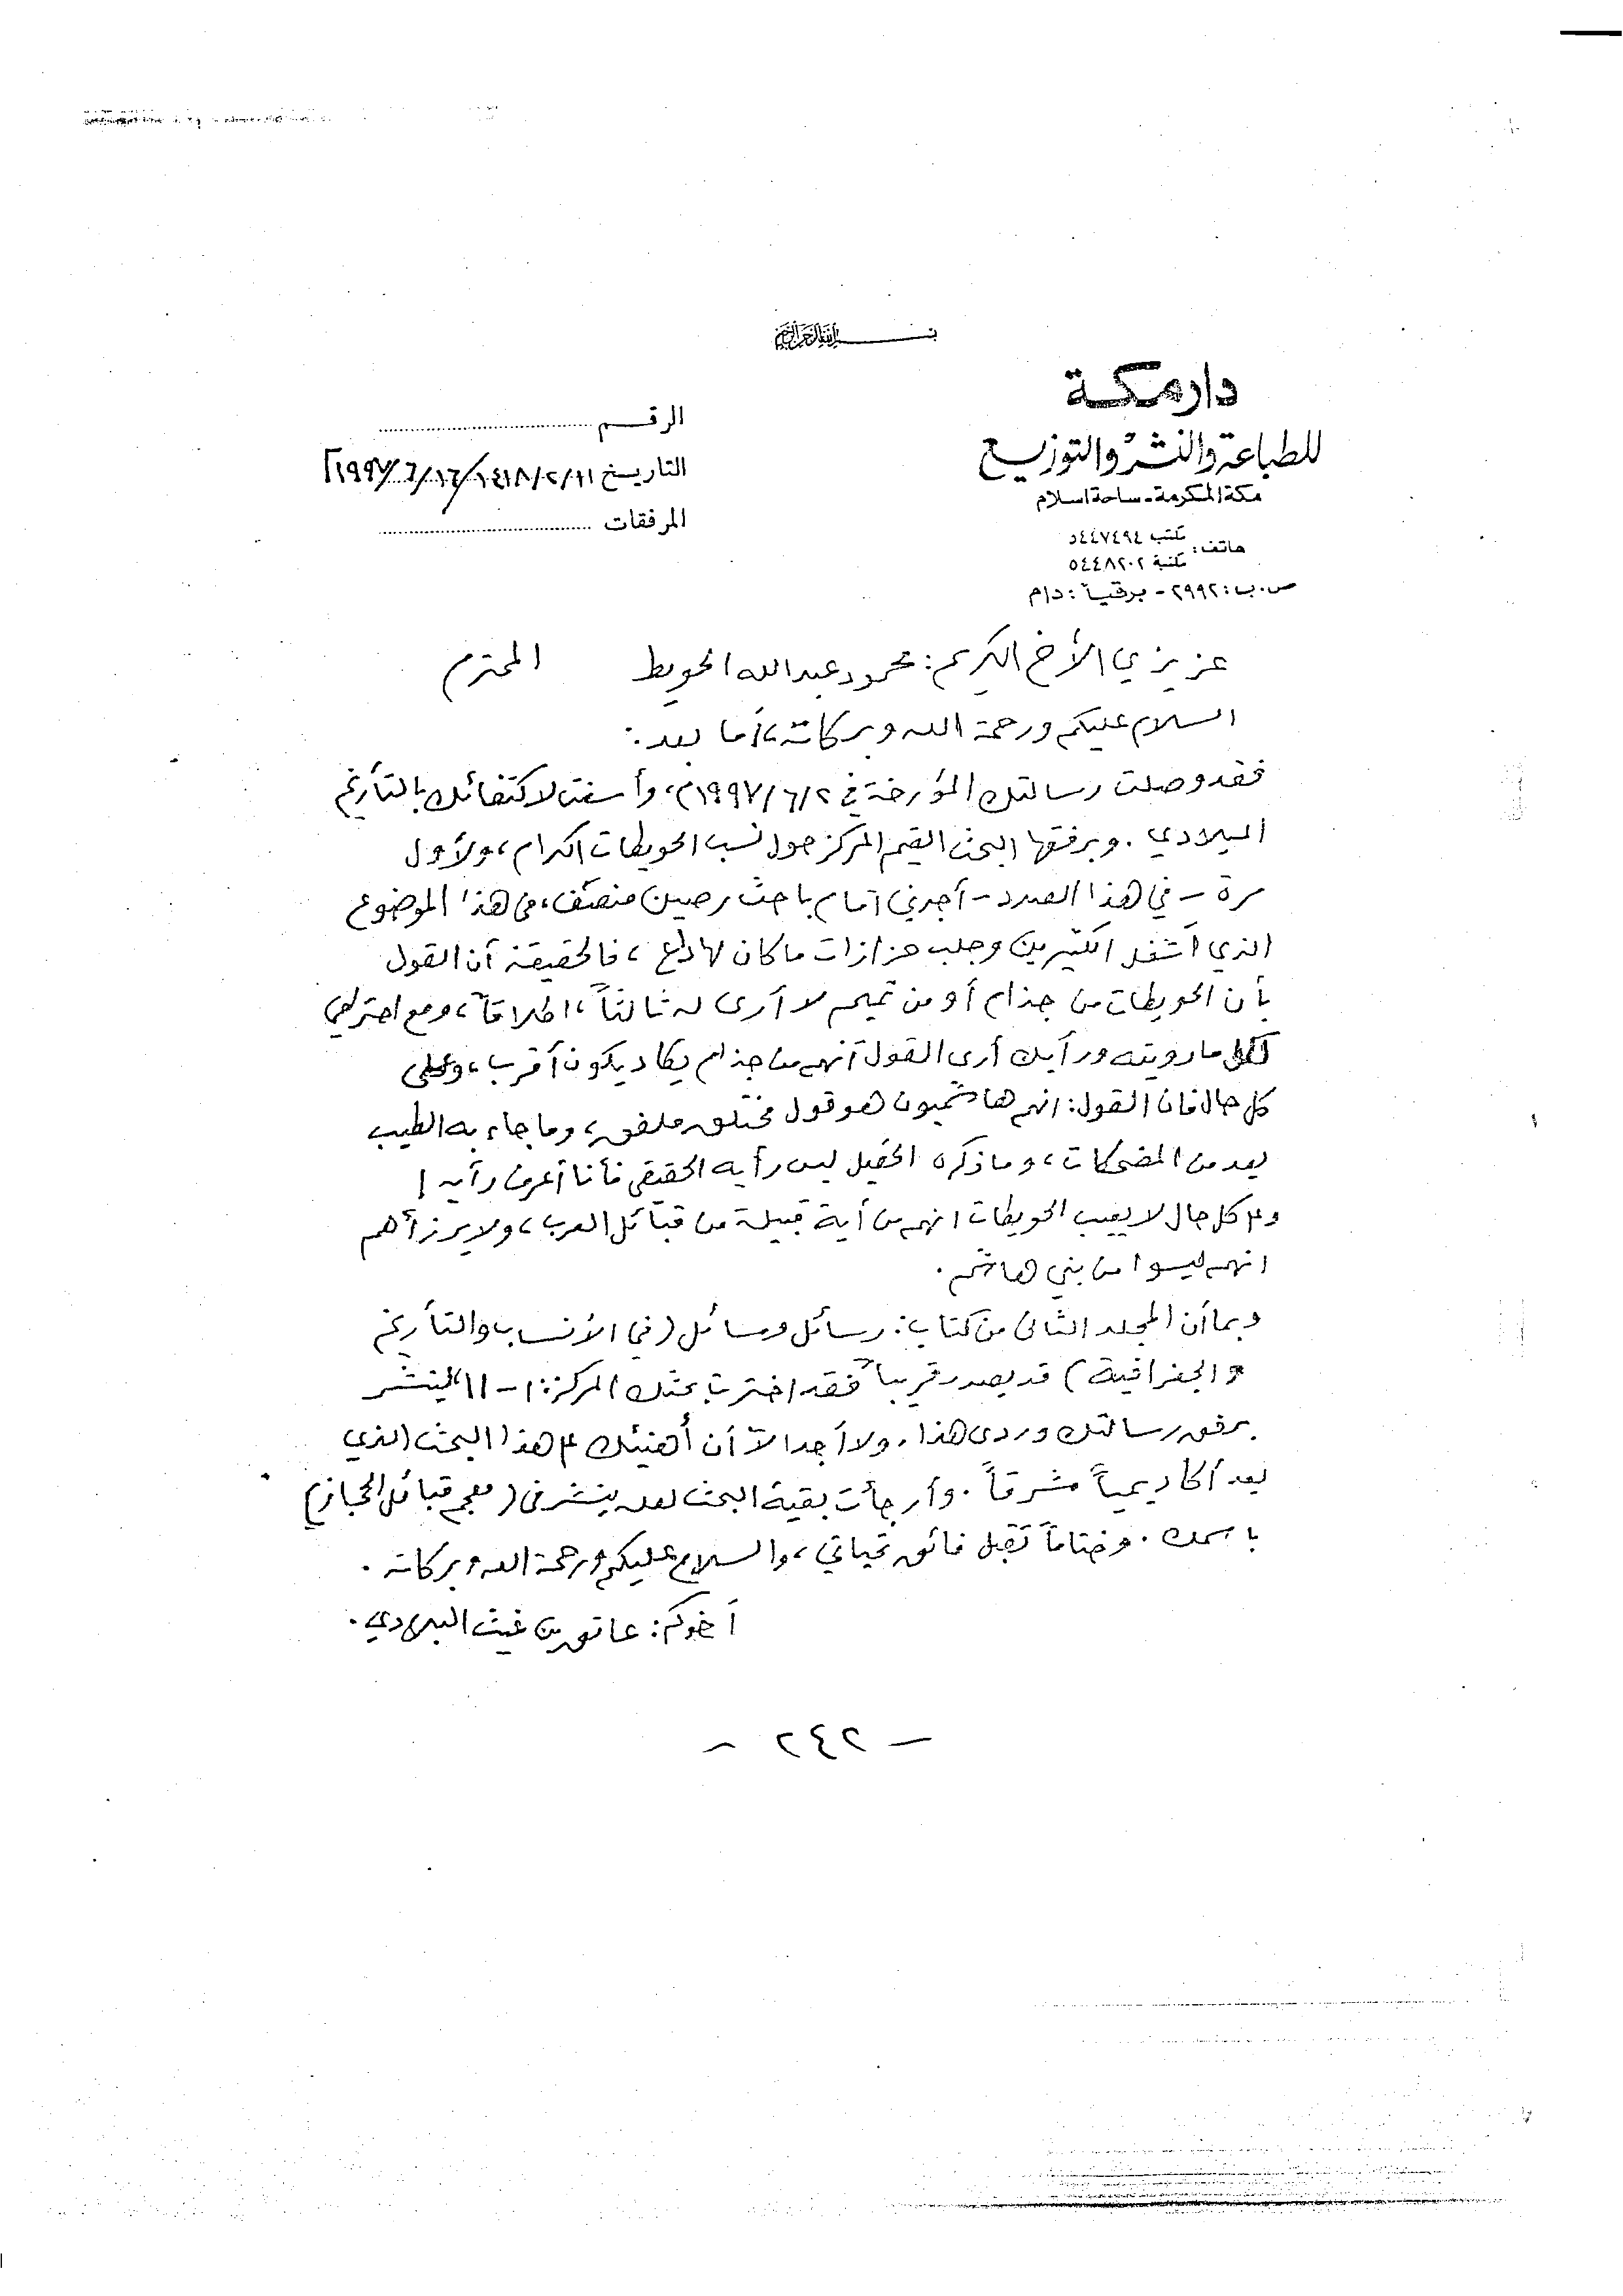 بسم الله الرحمن الرحيم
دار مكة
للطباعة والنشر والتوزيع
مكة المكرمة - ساحة اسلام
هاتف: مكتب ٥٤٤٧٤٩٤
مكتبة ٥٤٤٨٢٠٢
ص.ب: ٢٩٩٢ - برقياً: دام
الرقم
التاريخ ١٤١٨/٢/١١/ ١٩٩٧/٦/١٦م
المرفقات
عزيزي الأخ الكريم: محمود عبدالله الحويط المحترم
السلام عليكم ورحمة الله وبركاته، أما بعد:
فقد وصلت رسالتك المؤرخة في ١٩٩٧/٦/٢م، وأسفت لاكتفائك بالتأريخ
الميلادي. وبرفقها البحث القيم المركز حول نسب الحويطات الكرام، ولأول
مرة - في هذا الصدد - أجدني أمام باحث رصين منصف، في هذا الموضوع
الذي أشغل الكثيرين وجلب حزازات ما كان لها داع، فالحقيقة أن القول
بأن الحويطات من جذام أو من تميم لا أرى له ثالثاً، اطلاقاً، ومع احترامي
لكل ما رويته ورأيك أرى القول أنهم من جذام يكاد يكون أقرب، وعلى
كل حال فان القول: انهم هاشميون هو قول مختلق ملفق، وما جاء به الطيب
يعد من المضحكات، وما ذكره الحقيل ليس رأيه الحقيقي فأنا أعرف رأيه!
وع كل حال لا يعيب الحويطات انهم من أية قبيلة من قبائل العرب، ولا يرزأهم
انهم ليسوا من بني هاشم.
وبما أن المجلد الثاني من كتاب: رسائل ومسائل (في الأنساب والتأريخ
والجغرافية) قد يصدر قريباً فقد اخترت بحثك المركز: ١-١١ لينشر
برفق رسالتك وردي هذا. ولا أجد الا أن أهنيئك ع هذا البحث الذي
يعد أكاديمياً مشرقاً. وأرجأت بقية البحث لعله ينشر في (معجم قبائل الحجاز)
باسمك. وختاماً تقبل فائق تحياتي، والسلام عليكم ورحمة الله وبركاته.
أخوكم: عاتق بن غيث البلادي.
- ٢٤٢ -